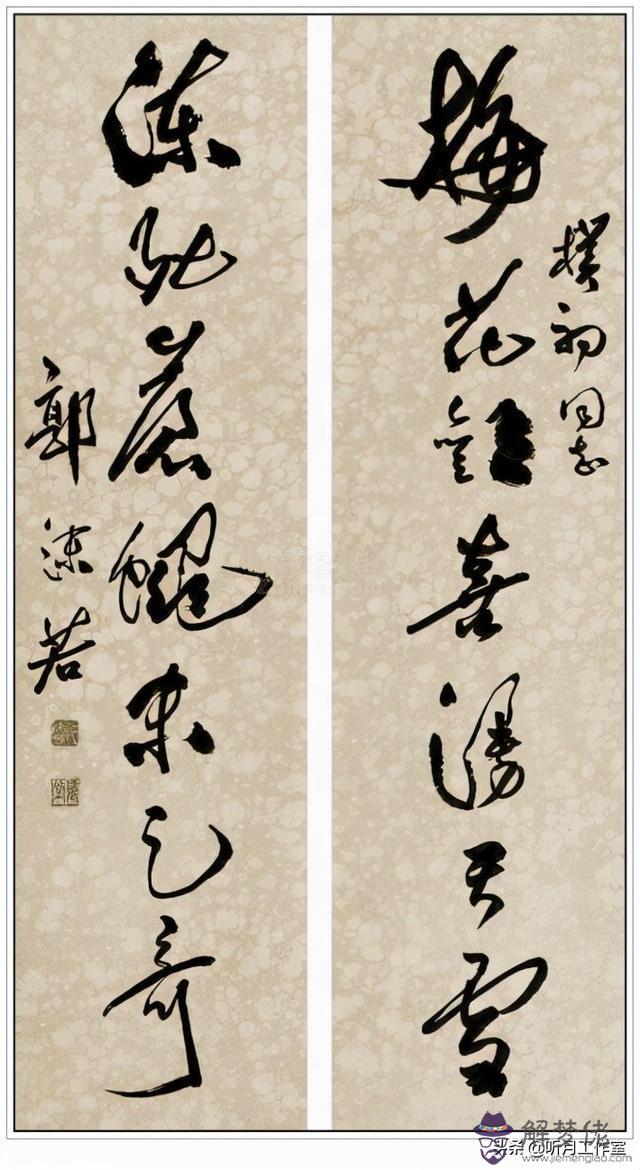 樸初同志
梅花歡喜漫天雪
凍死蒼蠅未足奇
郭沫若
解梦佬
头条 @听月工作室
www.jiemenglao.com